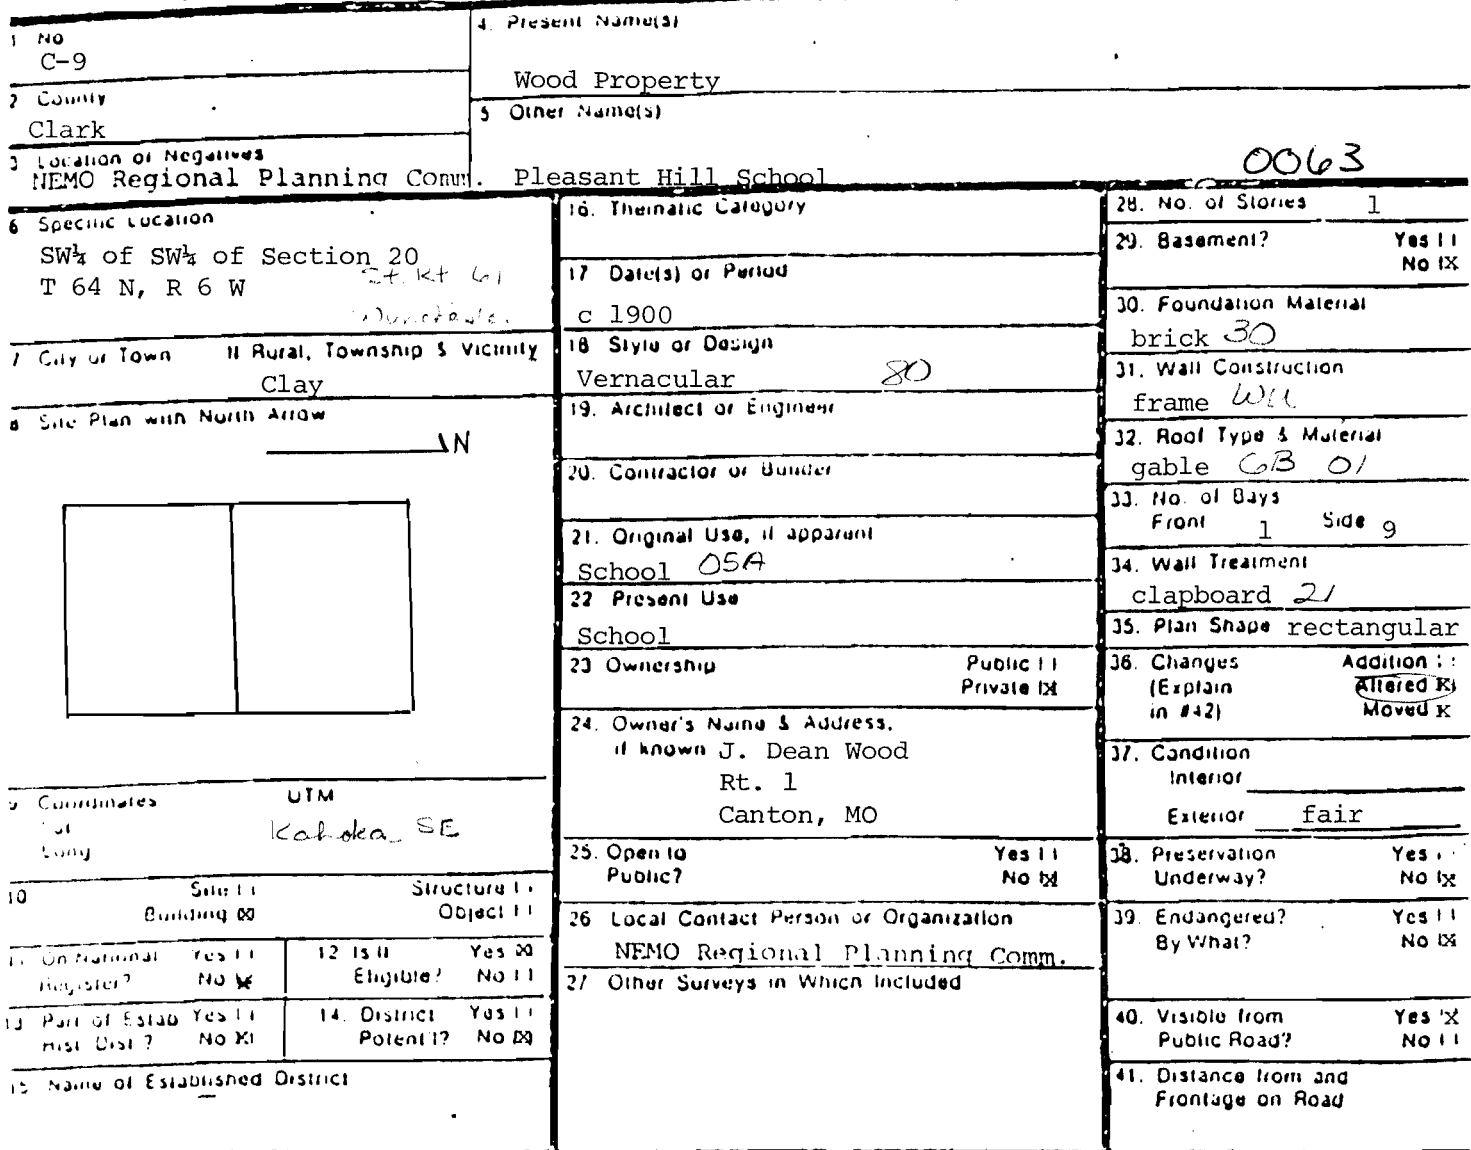 1 No
C-9
2 County
Clark
3 Location of Negatives
NEMO Regional Planning Comm.
4. Present Name(s)
Wood Property
5 Other Name(s)
Pleasant Hill School
0063
6 Specific Location
SW¼ of SW¼ of Section 20
T 64 N, R 6 W
St. Rt 61
7 City or Town If Rural, Township & Vicinity
Clay
8 Site Plan with North Arrow
N
9 Coordinates UTM
Lat
Long
Kahoka SE
10 Site [ ] Structure [ ]
Building [X] Object [ ]
11 On National Register? Yes [ ] No [X]
12 Is It Eligible? Yes [X] No [ ]
13 Part of Estab Hist. Dist.? Yes [ ] No [X]
14. District Potent'l? Yes [ ] No [X]
15 Name of Established District
16. Thematic Category
17 Date(s) or Period
c 1900
18 Style or Design
Vernacular 80
19. Architect or Engineer
20. Contractor or Builder
21. Original Use, if apparent
School OSA
22 Present Use
School
23 Ownership Public [ ]
Private [X]
24. Owner's Name & Address,
if known J. Dean Wood
Rt. 1
Canton, MO
25. Open to Yes [ ]
Public? No [X]
26 Local Contact Person or Organization
NEMO Regional Planning Comm.
27 Other Surveys in Which Included
28. No. of Stories 1
29. Basement? Yes [ ]
No [X]
30. Foundation Material
brick 30
31. Wall Construction
frame
32. Roof Type & Material
gable GB 01
33. No. of Bays
Front 1 Side 9
34. Wall Treatment
clapboard 21
35. Plan Shape rectangular
36. Changes Addition [ ]
(Explain Altered [X]
in #42) Moved X
37. Condition
Interior
Exterior fair
38. Preservation Yes [ ]
Underway? No [X]
39. Endangered? Yes [ ]
By What? No [X]
40. Visible from Yes [X]
Public Road? No [ ]
41. Distance from and
Frontage on Road